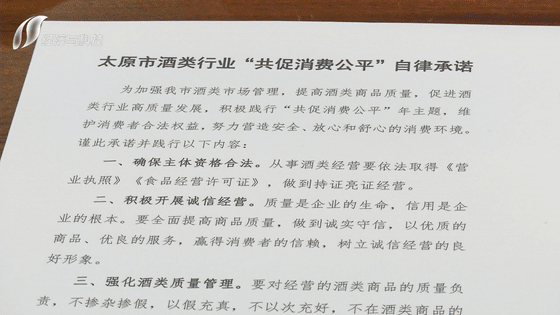 太原市酒类行业“共促消费公平”自律承诺
为加强我市酒类市场管理，提高酒类商品质量，促进酒
类行业高质量发展，积极践行“共促消费公平”年主题，维
护消费者合法权益，努力营造安全、放心和舒心的消费环境。
谨此承诺并践行以下内容：
一、确保主体资格合法。从事酒类经营要依法取得《营
业执照》《食品经营许可证》，做到持证亮证经营。
二、积极开展诚信经营。质量是企业的生命，信用是企
业的根本。要全面提高商品质量，做到诚实守信，以优质的
商品、优良的服务，赢得消费者的信赖，树立诚信经营的良
好形象。
三、强化酒类质量管理。要对经营的酒类商品的质量负
责，不掺杂掺假，以假充真，不以次充好，不在酒类商品的